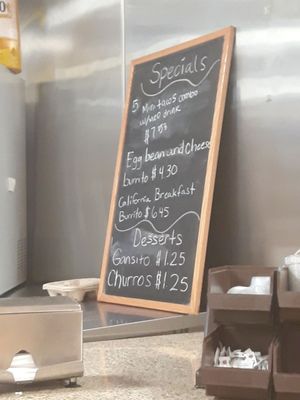 Specials
5 Mini tacos combo
w/med drink
Egg bean and cheese
burrito $4.30
California Breakfast
Burrito $6.45
Desserts
Gansito $1.25
Churros $1.25